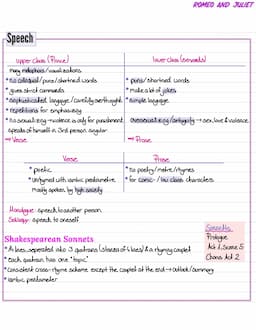 ROMEO AND JULIET
Speech
upper class (Prince)
lower class (servants)
many metaphors/visualizations
no colloquial/puns/shortened words
puns/shortened words
gives strict commands
make a lot of jokes
sophisticated language/carefully overthought
simple language
repetitions for emphasizing
no sexualizing → violence is only for punishment
oversexualizing/ambiguity → sex, love & violence
speaks of himself in 3rd person singular
→ Verse
→ Prose
Verse
Prose
poetic
no poetry/metre/rhymes
unrhymed with iambic pentametre
for comic-/low class characters
mostly spoken by high society
Monologue: speech to another person.
Soliloquy: speech to oneself.
Sonnets
Prologue
Act 1, Scene 5
Chorus Act 2
Shakespearean Sonnets
14 lines, separated into 3 quatrains (stanzas of 4 lines) & a rhyming couplet
each quatrain has one "topic"
consistent cross-rhyme scheme except the couplet at the end → outlook/summary
iambic pentametre